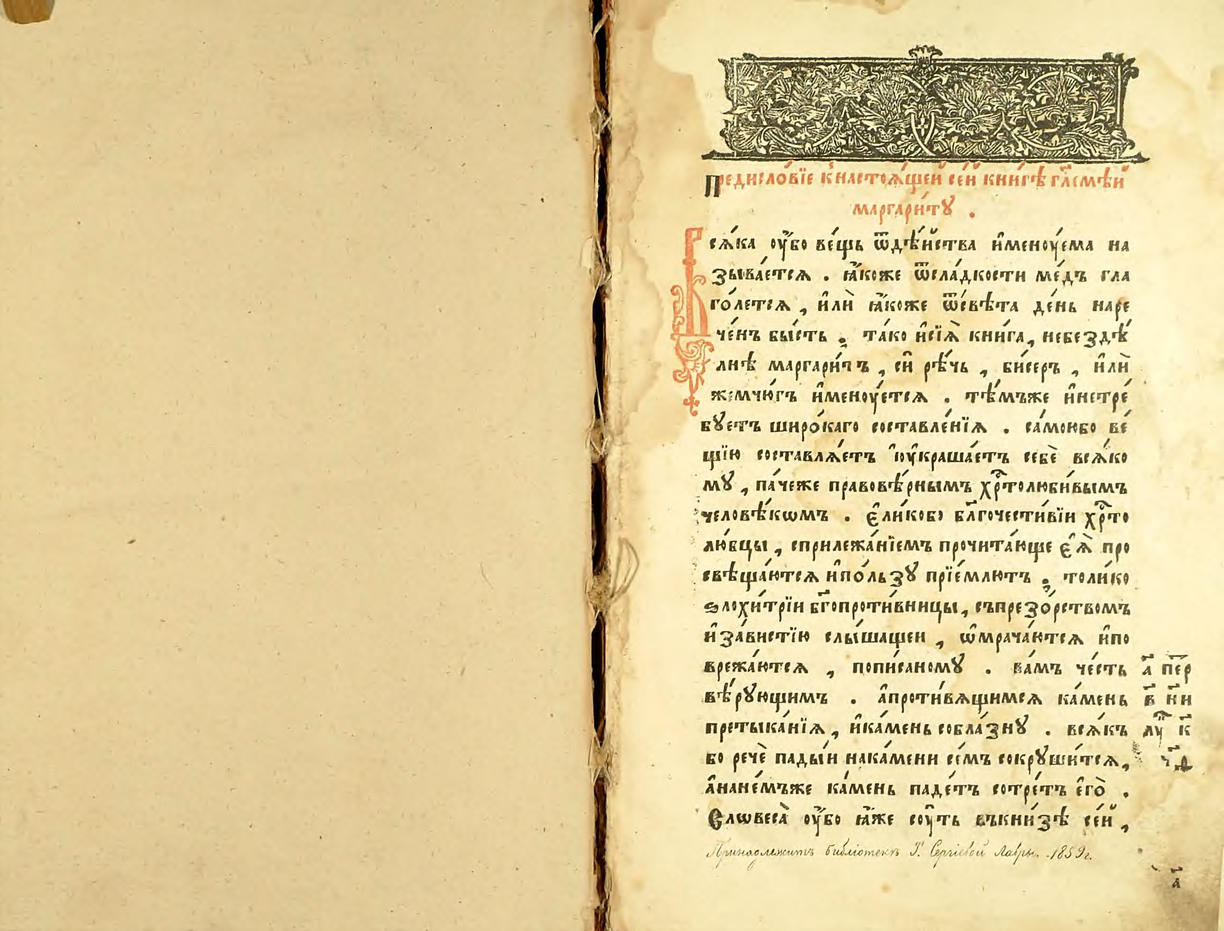 Предисло́вїе к̾настоѧ́щей се́й кни́гѣ гл҃емѣ́й
маргари́тꙋ .
Всѧ́ка ᲂу҆́бо ве́щь ѿдѣ́йства и҆менꙋ́ема на
зыва́етсѧ . ꙗ҆́коже ѿсла́дкости ме́дъ гла
го́летсѧ , и҆лѝ ꙗ҆́коже ѿсвѣ́та де́нь наре
че́нъ бы́сть . та́ко и҆сїѧ̀ кни́га , небездѣ́
лнѣ маргари́тъ , си̑ рѣ́чь , би́серъ , и҆лѝ
жемчю́гъ и҆менꙋ́етсѧ . тѣ́мъже и҆нетре́
бꙋетъ широ́каго составле́нїѧ . са́моюбо ве́
щїю составлѧ́етъ и҆ᲂу҆краша́етъ себѐ всѧ́ко
мꙋ , па́чеже правовѣ́рнымъ хрⷭ҇толюби́вымъ
человѣ́кѡмъ . є҆ли́кобо бл҃гочести́вїи хрⷭ҇то
лю́бцы , сприлежа́нїемъ прочита́юще є҆ѧ̀ про
свѣща́ютсѧ и҆по́льзꙋ прїе́млютъ . толи́ко
ѕлохи́трїи бг҃опроти́вницы , съпрезо́рствомъ
и҆за́вистїю слы́шащеи , ѡ҆мрача́ютсѧ и҆по
врежа́ютсѧ , пописа́номꙋ . ва́мъ че́сть
вѣ́рꙋющимъ . а҆проти́вѧщимсѧ ка́мень
претыка́нїѧ , и҆ка́мень собла́знꙋ . всѧ́къ
бо речѐ пады́и нака́мени се́мъ сокрꙋши́тсѧ ,
а҆нане́мъже ка́мень паде́тъ сотре́тъ є҆го̀ .
Словеса̀ ᲂу҆́бо ꙗ҆́же сꙋ́ть въкни́зѣ се́й ,
а҃ пер
в҃ ни
лꙋⷦ҇ к҃
ч҃д
Принадлежитъ библіотекѣ Т. Сергіевой Лавры. 1859 г.
а҃